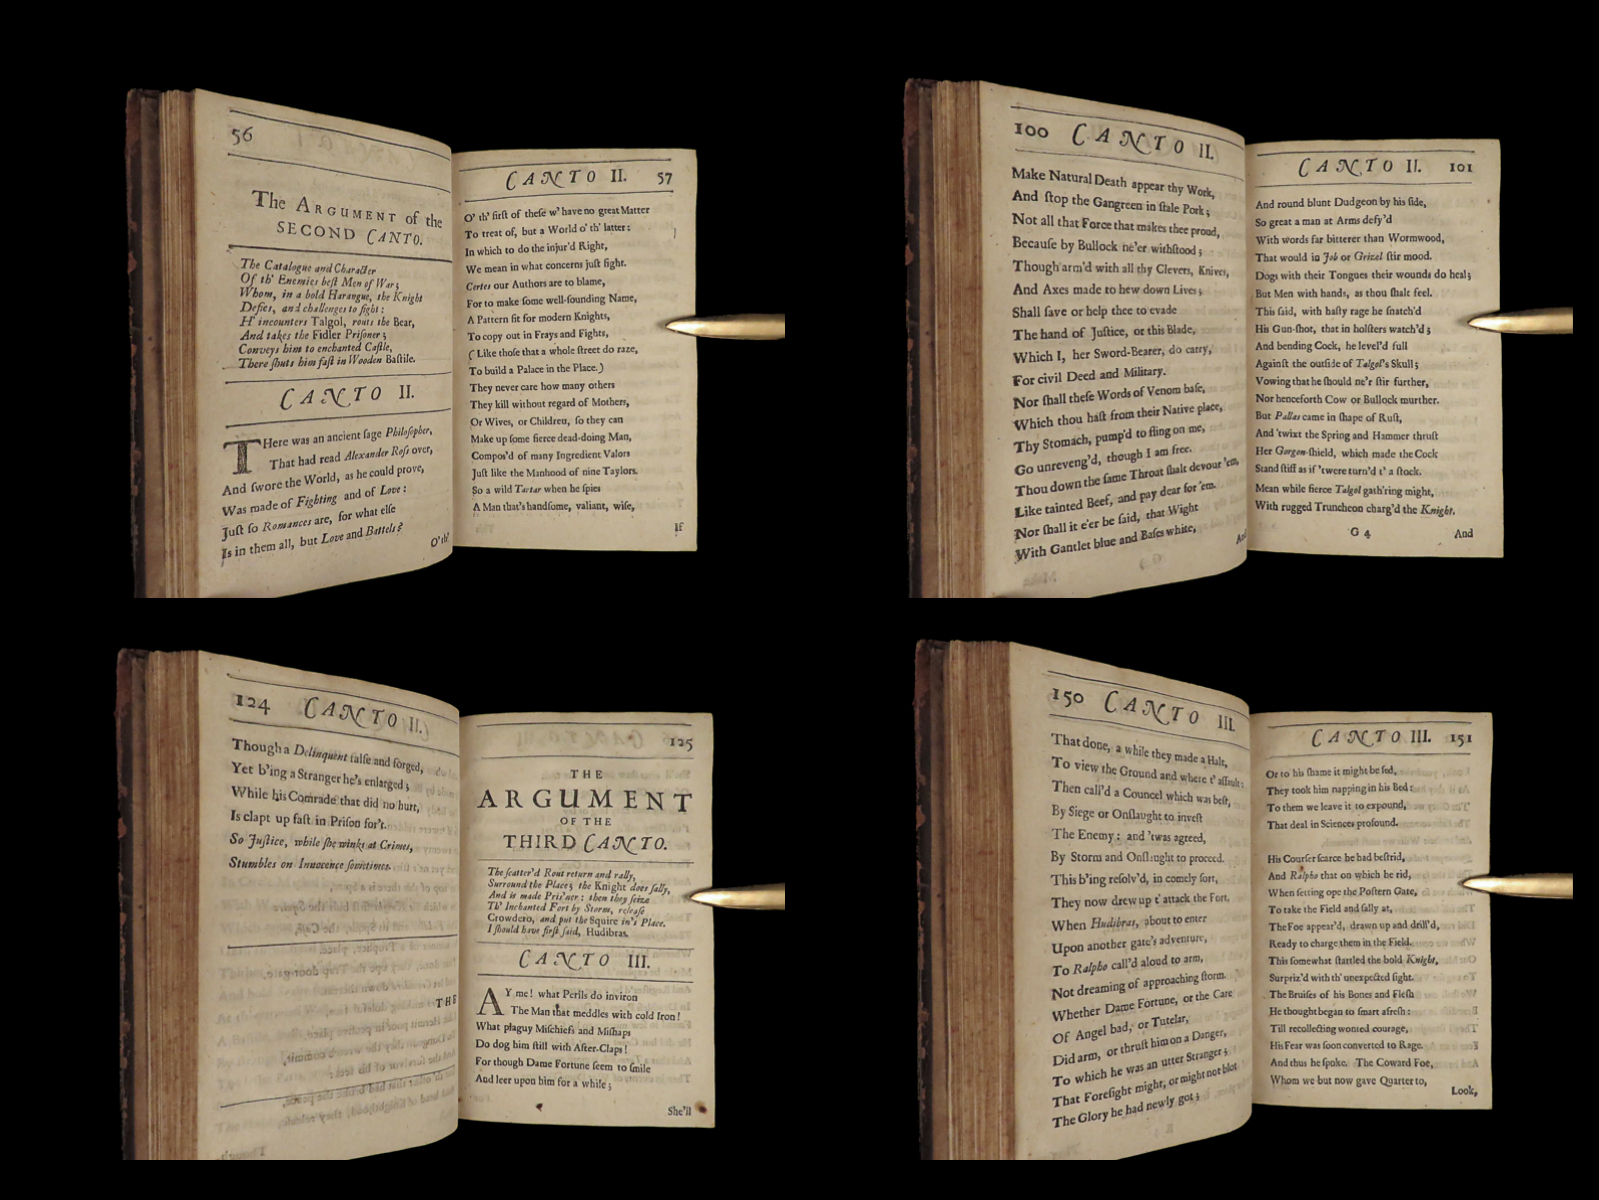 56
The ARGUMENT of the
SECOND CANTO.
The Catalogue and Character
Of th' Enemies best Men of War;
Whom, in a bold Harangue, the Knight
Defies, and challenges to fight:
H' incounters Talgol, routs the Bear,
And takes the Fidler Prisoner;
Conveys him to enchanted Castle,
There shuts him fast in Wooden Bastile.
CANTO II.
THere was an ancient sage Philosopher,
That had read Alexander Ross over,
And swore the World, as he could prove,
Was made of Fighting and of Love:
Just so Romances are, for what else
Is in them all, but Love and Battels?
O' th'
CANTO II. 57
O' th' first of these w' have no great Matter
To treat of, but a World o' th' latter:
In which to do the injur'd Right,
We mean in what concerns just fight.
Certes our Authors are to blame,
For to make some well-sounding Name,
A Pattern fit for modern Knights,
To copy out in Frays and Fights,
(Like those that a whole street do raze,
To build a Palace in the Place.)
They never care how many others
They kill without regard of Mothers,
Or Wives, or Children, so they can
Make up some fierce dead-doing Man,
Compos'd of many Ingredient Valors
Just like the Manhood of nine Taylors.
So a wild Tartar when he spies
A Man that's handsome, valiant, wise,
If
100 CANTO II.
Make Natural Death appear thy Work,
And stop the Gangreen in stale Pork;
Not all that Force that makes thee proud,
Because by Bullock ne'er withstood;
Though arm'd with all thy Clevers, Knives,
And Axes made to hew down Lives;
Shall save or help thee to evade
The hand of Justice, or this Blade,
Which I, her Sword-Bearer, do carry,
For civil Deed and Military.
Nor shall these Words of Venom base,
Which thou hast from their Native place,
Thy Stomach, pump'd to fling on me,
Go unreveng'd, though I am free.
Thou down the same Throat shalt devour 'em,
Like tainted Beef, and pay dear for 'em.
Nor shall it e'er be said, that Wight
With Gantlet blue and Bases white,
And
CANTO II. 101
And round blunt Dudgeon by his side,
So great a man at Arms defy'd
With words far bitterer than Wormwood,
That would in Job or Grizel stir mood.
Dogs with their Tongues their wounds do heal;
But Men with hands, as thou shalt feel.
This said, with hasty rage he snatch'd
His Gun-shot, that in holsters watch'd;
And bending Cock, he level'd full
Against the outside of Talgol's Skull;
Vowing that he should ne'r stir further,
Nor henceforth Cow or Bullock murther.
But Pallas came in shape of Rust,
And 'twixt the Spring and Hammer thrust
Her Gorgon-shield, which made the Cock
Stand stiff as if 'twere turn'd t' a stock.
Mean while fierce Talgol gath'ring might,
With rugged Truncheon charg'd the Knight.
G 4 And
124 CANTO II.
Though a Delinquent false and forged,
Yet b'ing a Stranger he's enlarged;
While his Comrade that did no hurt,
Is clapt up fast in Prison for't.
So Justice, while she winks at Crimes,
Stumbles on Innocence sometimes.
THE
125
THE
ARGUMENT
OF THE
THIRD CANTO.
The scatter'd Rout return and rally,
Surround the Place; the Knight does sally,
And is made Pris'ner: then they seize
Th' Inchanted Fort by Storm, release
Crowdero, and put the Squire in's Place.
I should have first said, Hudibras.
CANTO III.
AY me! what Perils do inviron
The Man that meddles with cold Iron!
What plaguy Mischiefs and Mishaps
Do dog him still with After-Claps!
For though Dame Fortune seem to smile
And leer upon him for a while;
She'll
150 CANTO III.
That done, a while they made a Halt,
To view the Ground and where t' assault:
Then call'd a Councel which was best,
By Siege or Onslaught to invest
The Enemy: and 'twas agreed,
By Storm and Onslaught to proceed.
This b'ing resolv'd, in comely sort,
They now drew up t' attack the Fort.
When Hudibras, about to enter
Upon another gate's adventure,
To Ralpho call'd aloud to arm,
Not dreaming of approaching storm.
Whether Dame Fortune, or the Care
Of Angel bad, or Tutelar,
Did arm, or thrust him on a Danger,
To which he was an utter Stranger;
That Foresight might, or might not blot
The Glory he had newly got;
CANTO III. 151
Or to his shame it might be sed,
They took him napping in his Bed:
To them we leave it to expound,
That deal in Sciences profound.
His Courser scarce he had bestrid,
And Ralpho that on which he rid,
When setting ope the Postern Gate,
To take the Field and sally at,
The Foe appear'd, drawn up and drill'd,
Ready to charge them in the Field.
This somewhat startled the bold Knight,
Surpriz'd with th' unexpected sight.
The Bruises of his Bones and Flesh
He thought began to smart afresh:
Till recollecting wonted courage,
His Fear was soon converted to Rage.
And thus he spoke. The Coward Foe,
Whom we but now gave Quarter to,
Look,